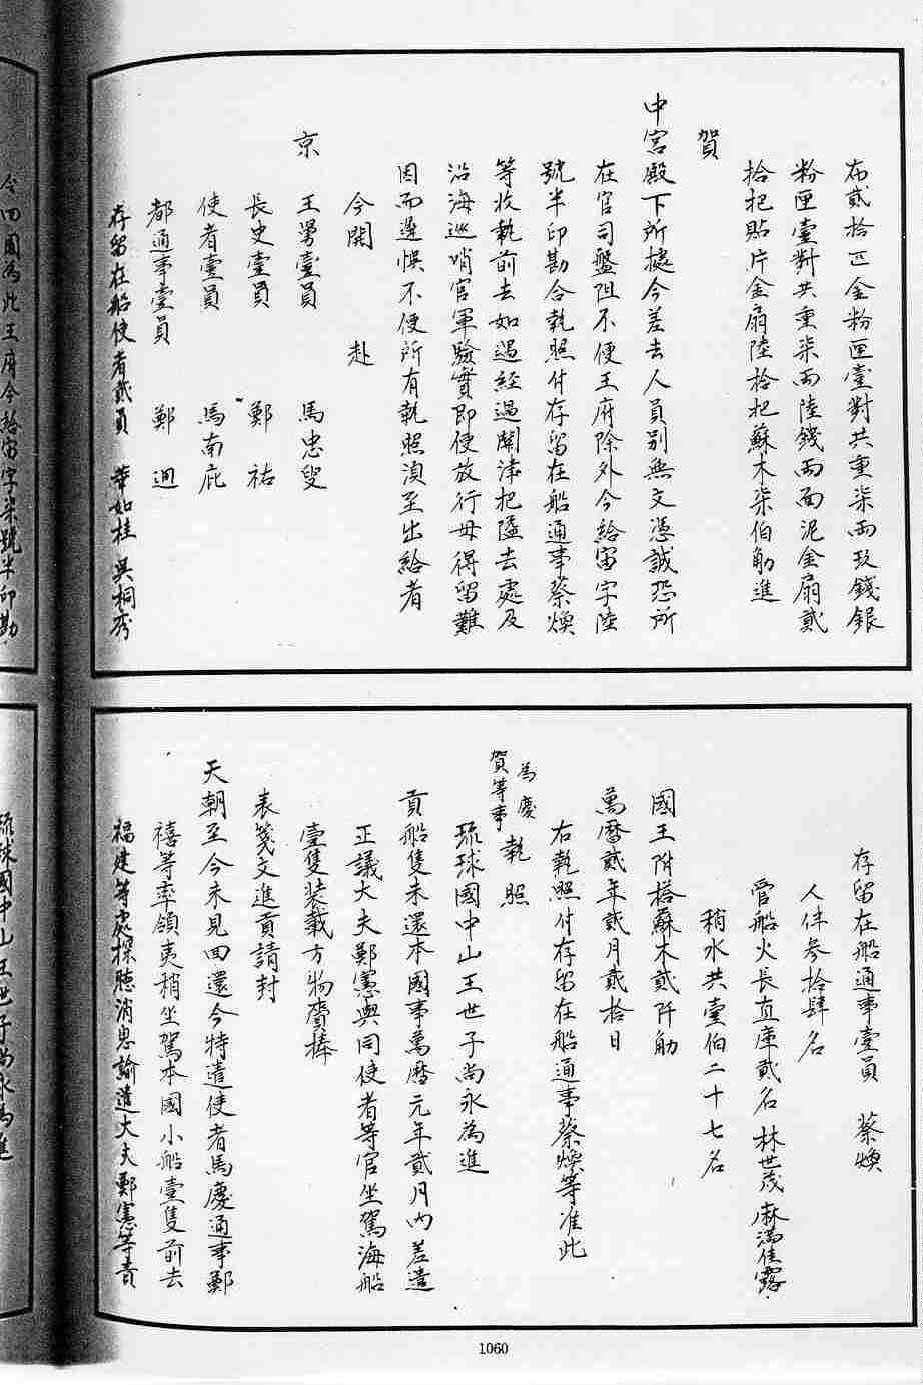 布貳拾匹金粉匣壹對共重柒兩玖錢銀
粉匣壹對共重柒兩陸錢兩面泥金扇貳
拾把貼片金扇陸拾把蘇木柒伯觔進
賀
中宮殿下所據今差去人員別無文憑誠恐所
在官司盤阻不便王府除外今給宙字陸
號半印勘合執照付存留在船通事蔡煥
等收執前去如遇經過關津把隘去處及
沿海巡哨官軍驗實即便放行毋得留難
因而遲悞不便所有執照須至出給者
今開 赴
京 王舅壹員 馬忠叟
長史壹員 鄭祐
使者壹員 馬南庇
都通事壹員 鄭迵
存留在船使者貳員 華如桂 吳桐秀
存留在船通事壹員 蔡煥
人伴參拾肆名
管船火長直庫貳名 林世茂 麻滿佳露
稍水共壹伯二十七名
國王附搭蘇木貳阡觔
萬曆貳年貳月貳拾日
右執照付存留在船通事蔡煥等准此
為慶
賀等事 執照
琉球國中山王世子尚永為進
貢船隻未還本國事萬曆元年貳月內差遣
正議大夫鄭憲與同使者等官坐駕海船
壹隻裝載方物齎捧
表箋文進貢請封
天朝至今未見回還今特遣使者馬慶通事鄭
禧等率領夷稍坐駕本國小船壹隻前去
福建等處探聽消息諭遣大夫鄭憲等責
1060
令回國為此王府今給宙字柒號半印勘
琉球國中山王世子尚永為進